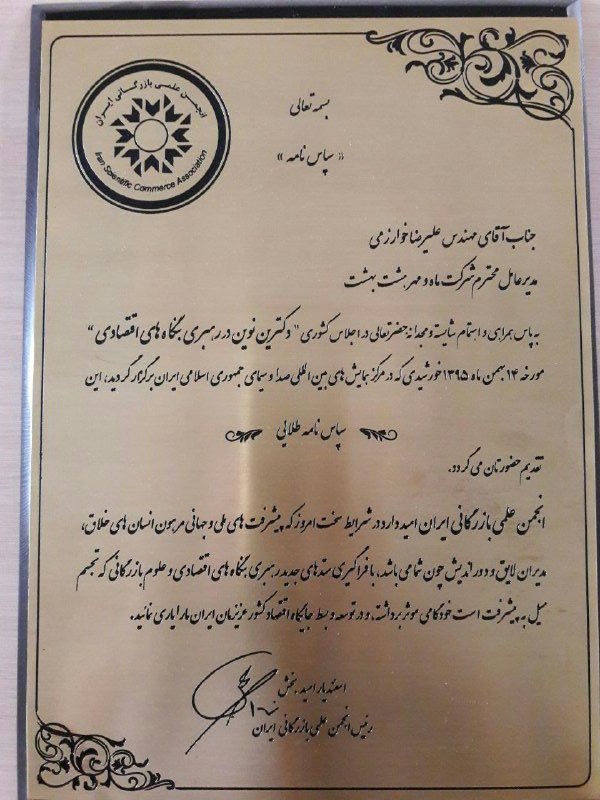 انجمن علمی بازرگانی ایران
Iran Scientific Commerce Association
بسمه تعالی
« سپاس نامه »
جناب آقای مهندس علیرضا خوارزمی
مدیرعامل محترم شرکت ماه و مهر هشت بهشت
به پاس همراهی و اهتمام شایسته و مجدانه حضرتعالی در اجلاس کشوری " دکترین نوین در رهبری بنگاه های اقتصادی "
مورخه ۱۴ بهمن ماه ۱۳۹۵ خورشیدی که در مرکز همایش های بین المللی صدا و سیمای جمهوری اسلامی ایران برگزار گردید، این
سپاس نامه طلایی
تقدیم حضورتان می گردد.
انجمن علمی بازرگانی ایران امید دارد در شرایط سخت امروز که پیشرفت های ملی و جهانی مرهون انسان های خلاق،
مدیران لایق و دور اندیش چون شما می باشد، با فراگیری متدهای جدید رهبری بنگاه های اقتصادی و علوم بازرگانی که تجسم
میل به پیشرفت است خود گامی موثر برداشته، و در توسعه و بسط جایگاه اقتصاد کشور عزیزمان ایران ما را یاری نمائید.
اسفندیار امید بخش
رئیس انجمن علمی بازرگانی ایران